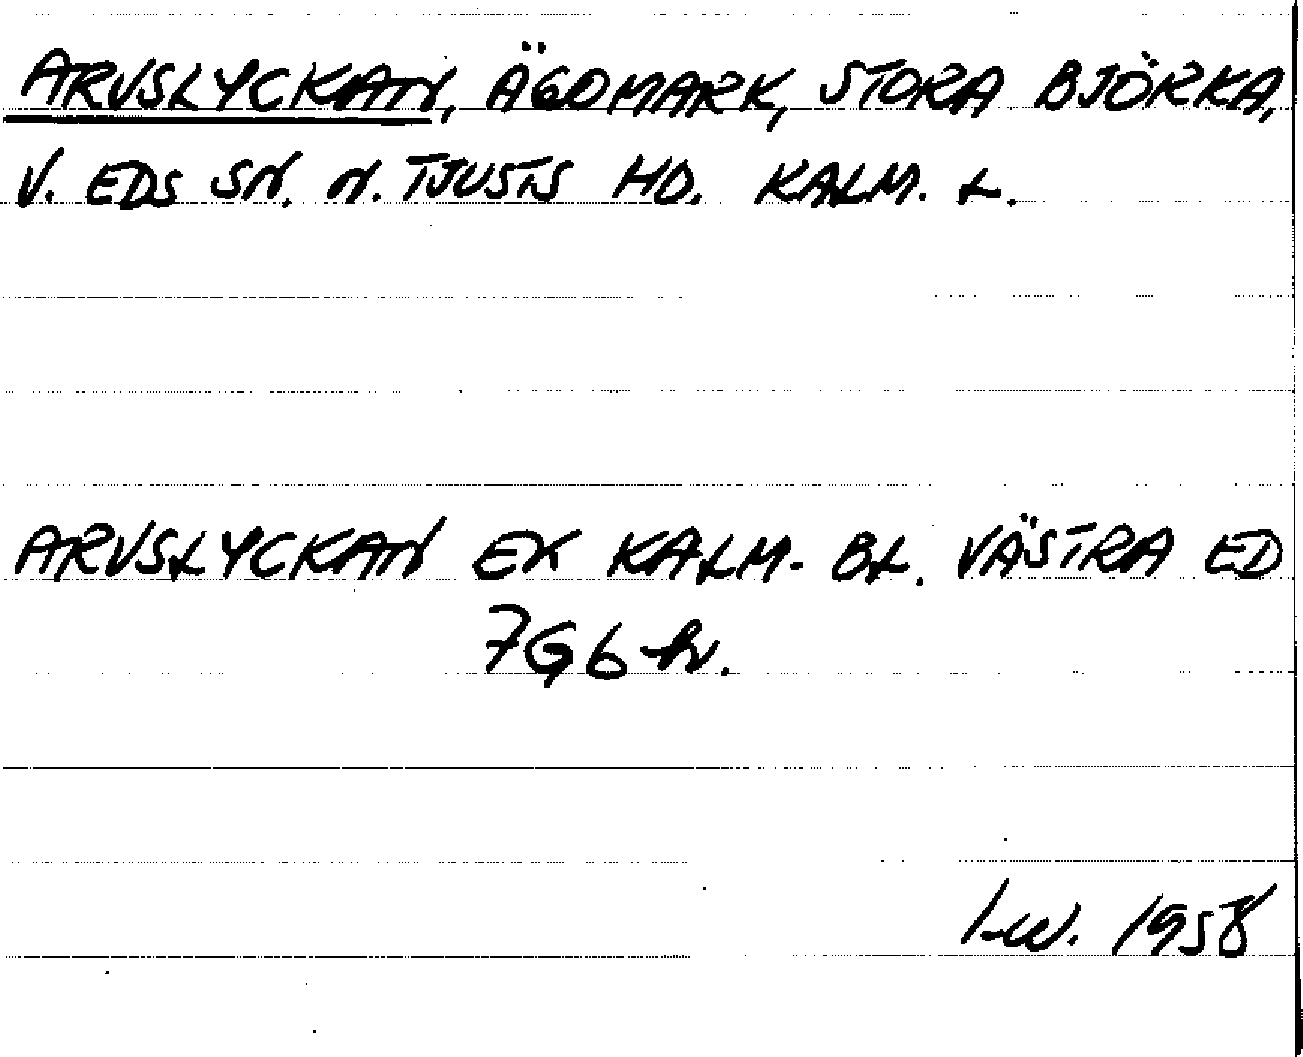 ARVSLYCKAN, ÄGOMARK, STORA BJÖRKA,
V. EDS SN. N. TJUSTS HD. KALM. L.
ARVSLYCKAN EK KALM. BL. VÄSTRA ED
7G6h.
1958